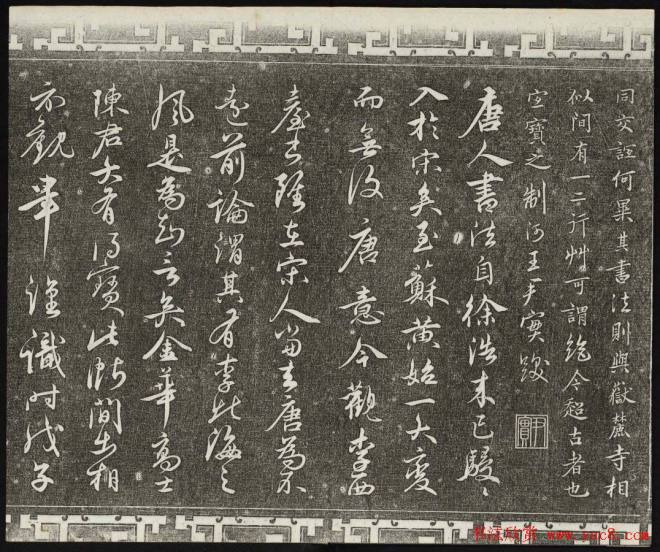 同文詎何異其書法則與嶽麓寺相
似間有一二行艸可謂絶今超古者也
宝寶之 制河王尹實跋
尹實
唐人書法自徐浩末已駸々
入於宋矣至蘇黄始一大變
而無復唐意今觀李西
臺書雖在宋人當去唐為不
遠前論謂其有李北海之
風是為知言矣金華高士
陳君大有得寶此帖間出相
示觀畢謹識时戊子
www.sac8.com